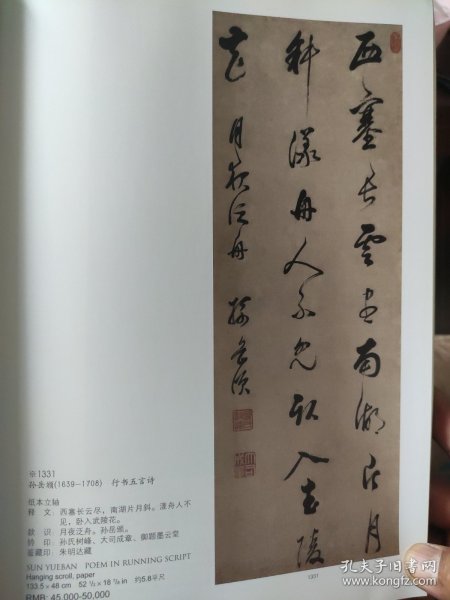 西塞長雲盡南湖片月
斜漾舟人不見臥入武陵
花 月夜泛舟 孫岳頒
※1331
孙岳颁(1639-1708) 行书五言诗
纸本立轴
释 文：西塞长云尽，南湖片月斜。漾舟人不
见，卧入武陵花。
款 识：月夜泛舟。孙岳颁。
钤 印：孙氏树峰、大司成章、御题墨云堂
鉴藏印：朱明达藏
SUN YUEBAN POEM IN RUNNING SCRIPT
Hanging scroll, paper
133.5×48 cm 52 ½×18 ⅞ in 约5.8平尺
RMB: 45,000-50,000
1331
孔夫子旧书网